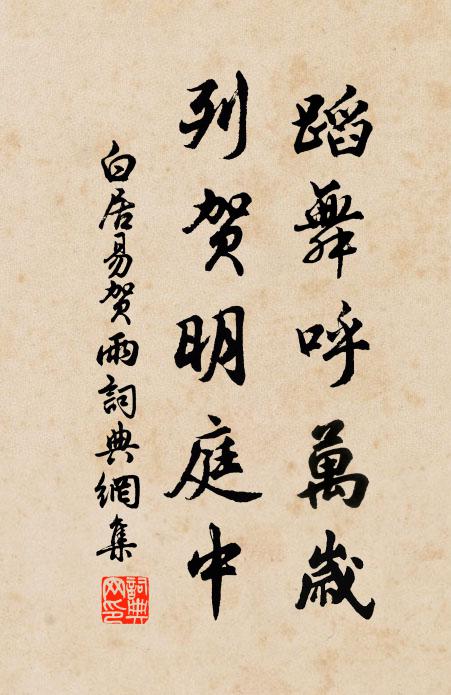 蹈舞呼萬歲
列贺明庭中
白居易贺雨詞典網集
詞典網印